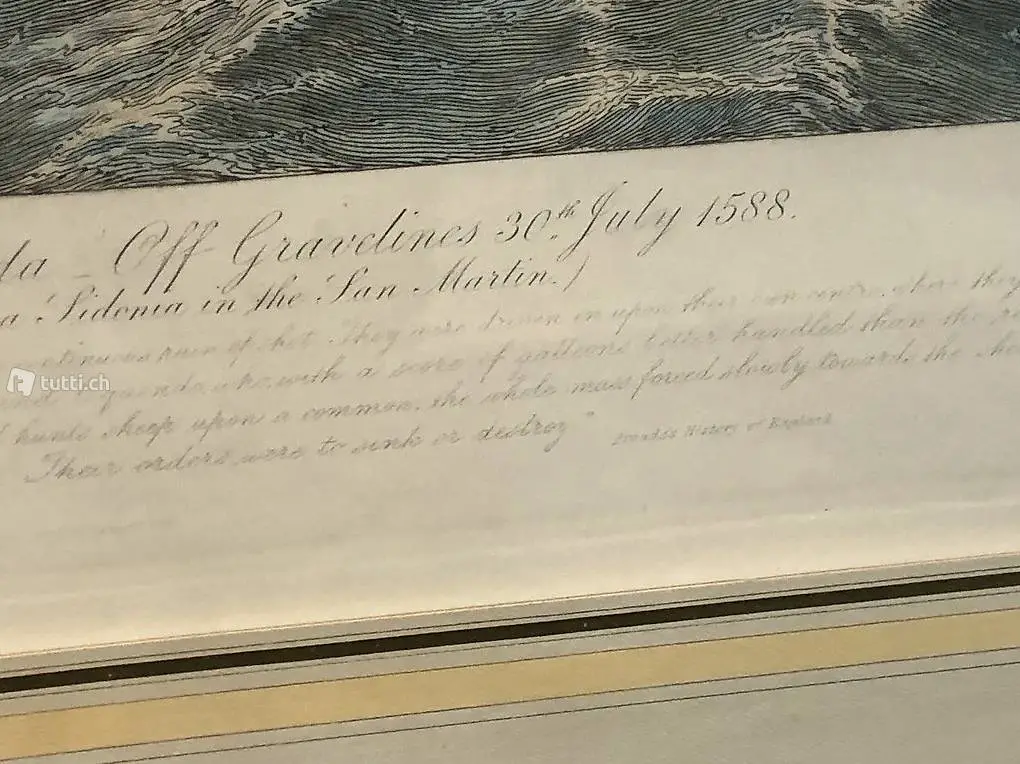 da - Off Gravelines 30th July 1588.
a Sidonia in the San Martin.)
continuous rain of shot. They were driven in upon their own centre, where they
and Sequenda, who, with a score of galleons better handled than the
hunts sheep upon a common. the whole mass forced slowly towards the
Their orders were to sink or destroy"
Froude's History of England
tutti.ch